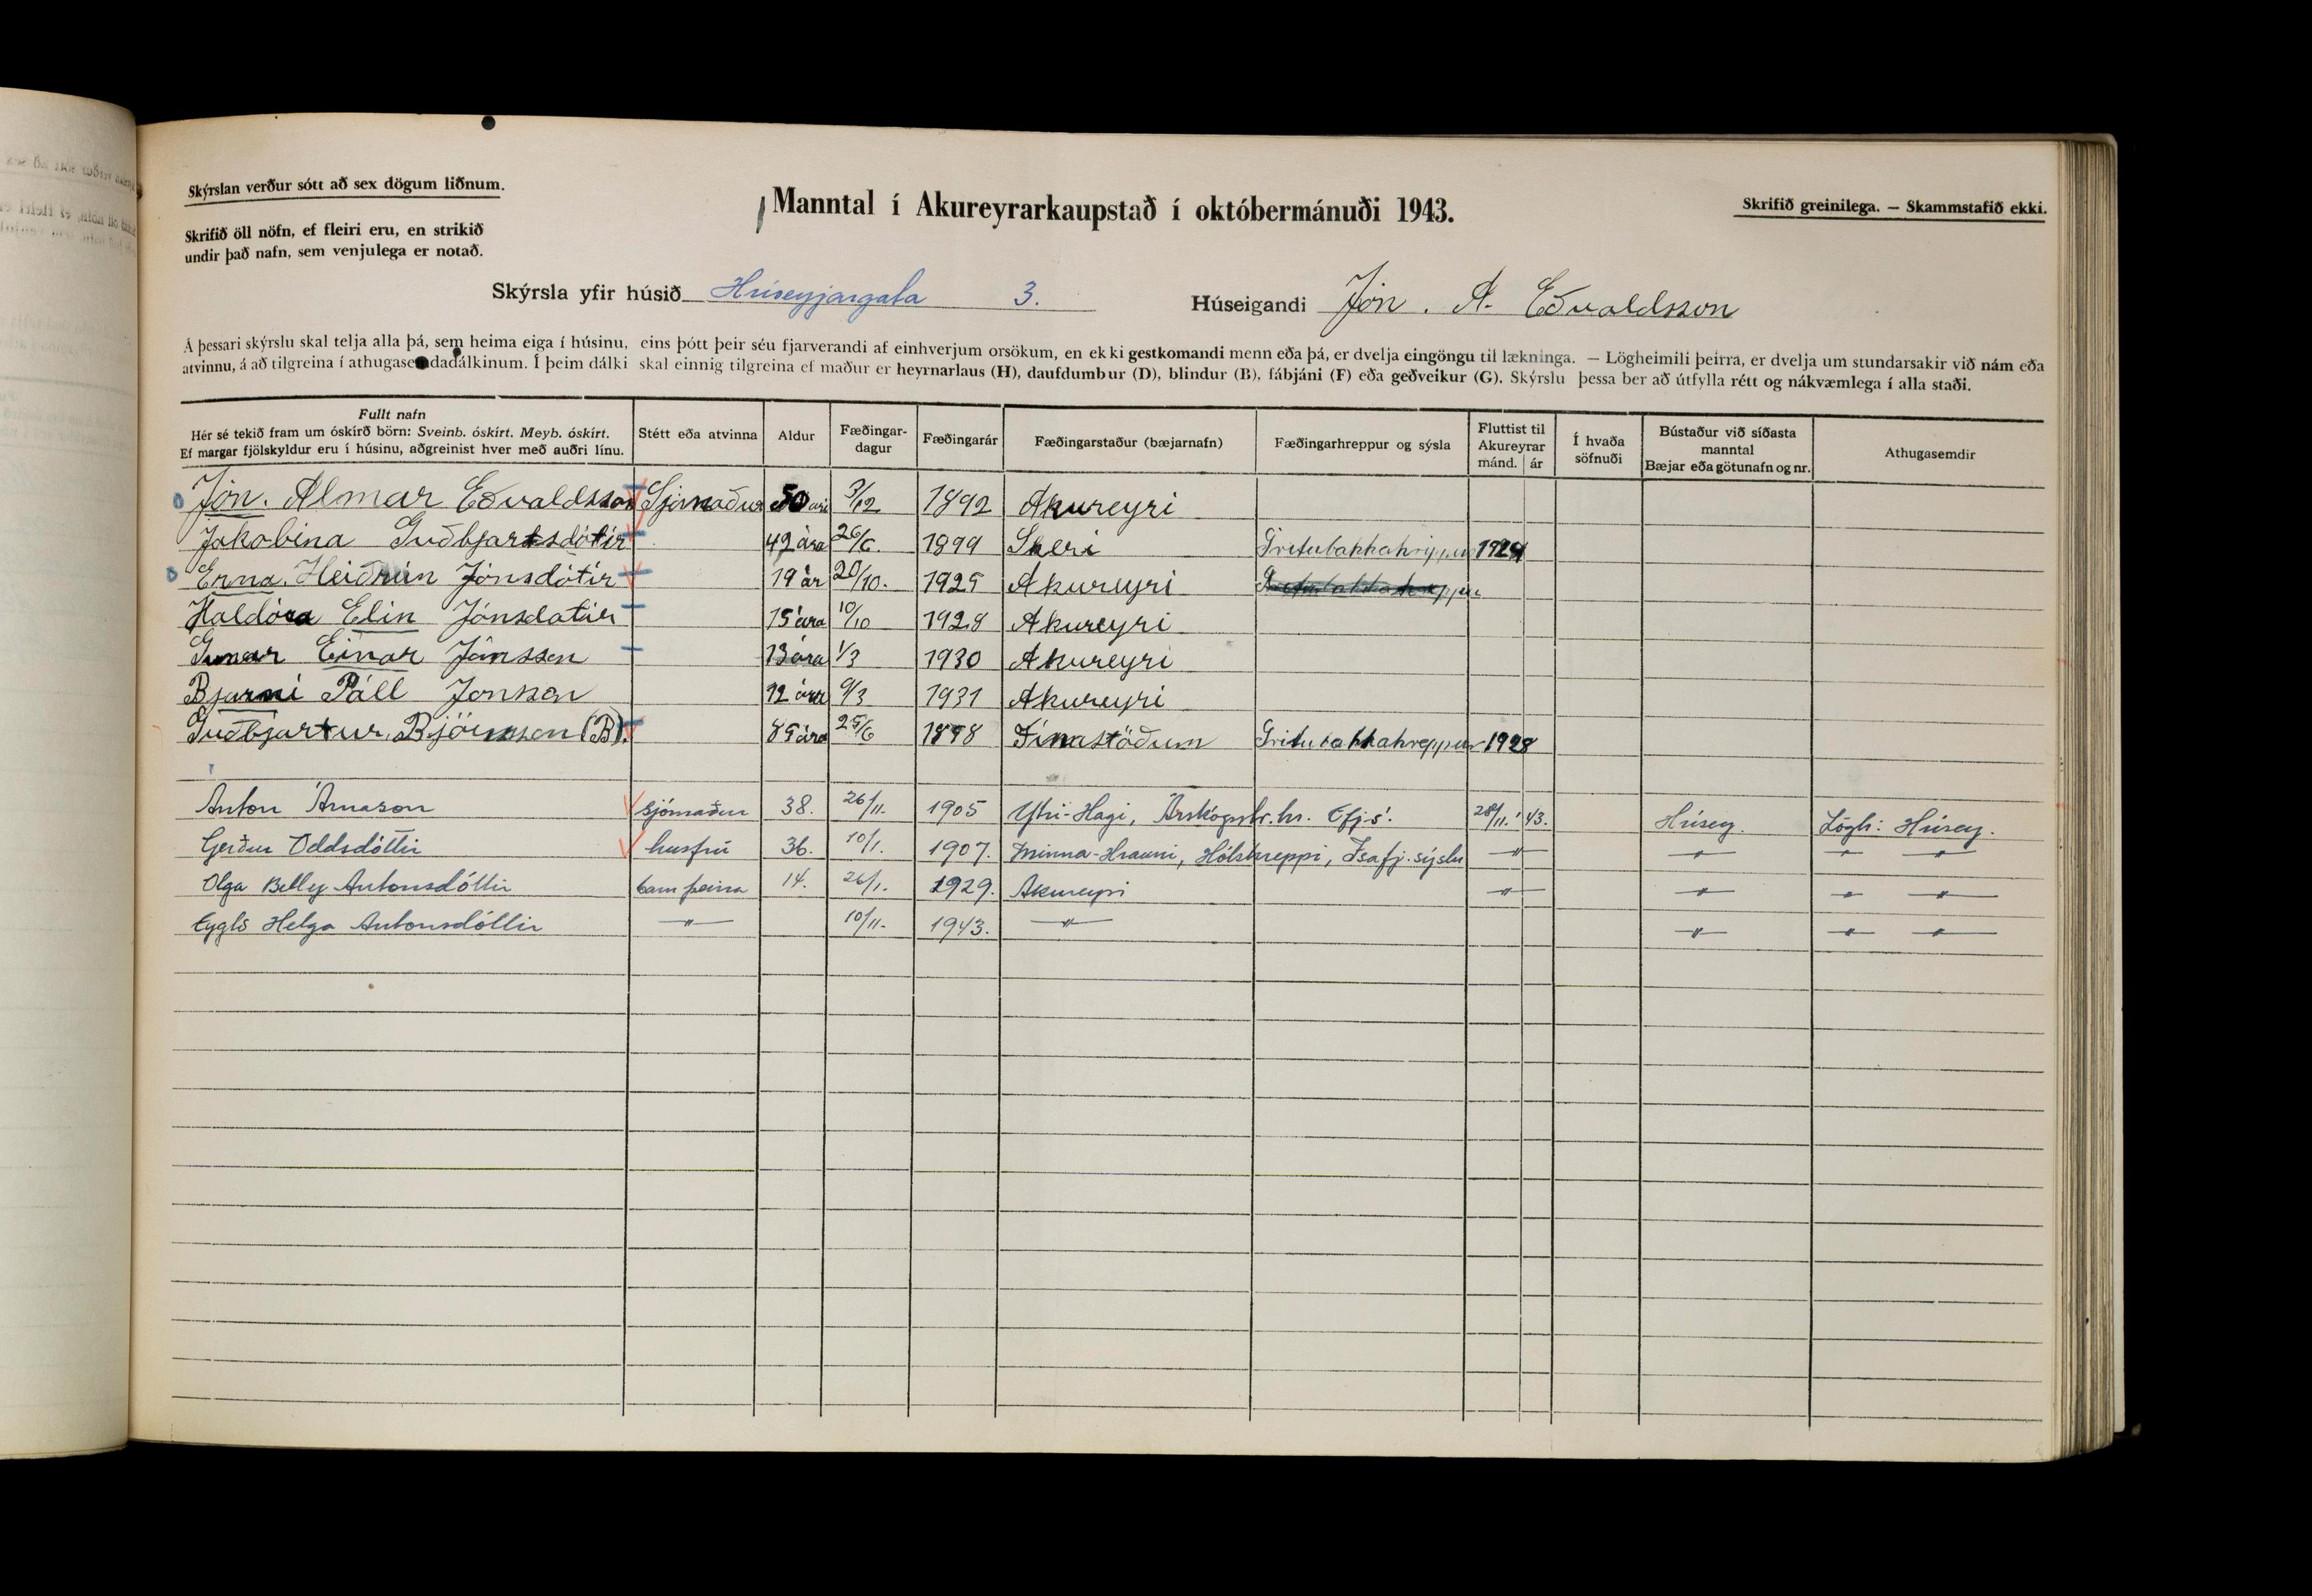 Skýrslan verður sótt að sex dögum liðnum.
Manntal í Akureyrarkaupstað í októbermánuði 1943.
Skrifið greinilega. — Skammstafið ekki.
Skrifið öll nöfn, ef fleiri eru, en strikið
undir það nafn, sem venjulega er notað.
Skýrsla yfir húsið Hríseyjargata 3. Húseigandi Jón. A. Eðvaldsson
Á þessari skýrslu skal telja alla þá, sem heima eiga í húsinu, eins þótt þeir séu fjarverandi af einhverjum orsökum, en ekki gestkomandi menn eða þá, er dvelja eingöngu til lækninga. — Lögheimili þeirra, er dvelja um stundarsakir við nám eða
atvinnu, á að tilgreina í athugasemdadálkinum. Í þeim dálki skal einnig tilgreina ef maður er heyrnarlaus (H), daufdumbur (D), blindur (B), fábjáni (F) eða geðveikur (G). Skýrslu þessa ber að útfylla rétt og nákvæmlega í alla staði.
Fullt nafn
Hér sé tekið fram um óskírð börn: Sveinb. óskírt. Meyb. óskírt.
Ef margar fjölskyldur eru í húsinu, aðgreinist hver með auðri línu.
Stétt eða atvinna
Aldur
Fæðingar-
dagur
Fæðingarár
Fæðingarstaður (bæjarnafn)
Fæðingarhreppur og sýsla
Fluttist til
Akureyrar
mánd. ár
Í hvaða
söfnuði
Bústaður við síðasta
manntal
Bæjar eða götunafn og nr.
Athugasemdir
Jón. Almar Eðvaldsson Sjómaður 50 ári 3/12 1892 Akureyri
Jakobina Guðbjartsdótir 42 ára 26/6. 1899 Skeri Gritubakkahrippur 1924
Erna. Heiðrún Jónsdótir 19 ár 20/10. 1925 Akureyri
Haldóra Elin Jónsdatir 15 ára 10/10 1928 Akureyri
Gunnar Einar Jónsson 13 ára 1/3 1930 Akureyri
Bjarni Páll Jonson 12 ára 9/3 1931 Akureyri
Guðbjartur. Björnsson (B). 85 ára 25/6 Finnastöðum Gritubakkahreppur 1928
Anton Árnason sjómaður 38. 26/11. 1905 Ytri-Hagi, Árskógsstr.hr. Efj.s. 28/11.' 43. Hrísey. Lögh: Hrísey.
Gerður Oddsdóttir húsfrú 36. 10/1. 1907. Minna-Hrauni, Hólshreppi, Ísafj.sýslu —〃— —〃— —〃— —〃—
Olga Betty Antonsdóttir barn þeirra 14. 26/1. 1929. Akureyri —〃— —〃— —〃— —〃—
Eygló Helga Antonsdóttir —〃— 10/11. 1943. —〃— —〃— —〃— —〃—